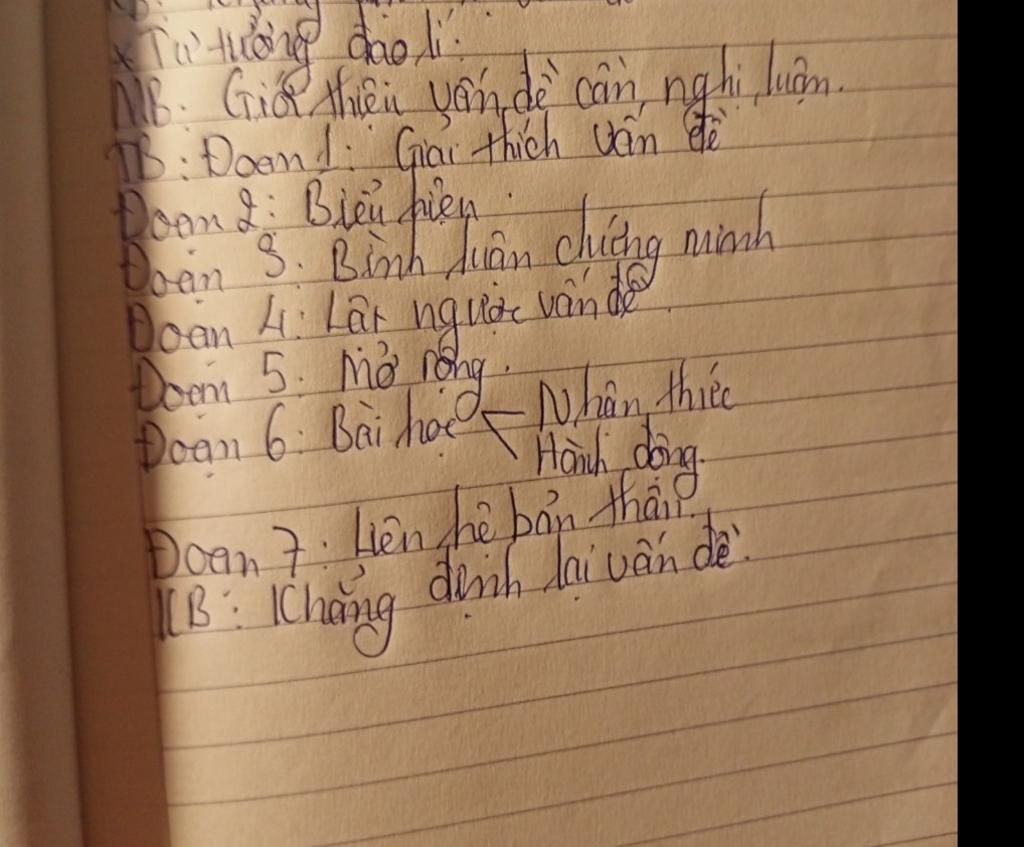 * Tư tưởng đạo lí:
MB: Giới thiệu vấn đề cần nghị luận.
TB: Đoạn 1: Giải thích vấn đề
Đoạn 2: Biểu hiện.
Đoạn 3: Bình luận chứng minh
Đoạn 4: Lật ngược vấn đề.
Đoạn 5: Mở rộng.
Đoạn 6: Bài học < Nhận thức
Hành động.
Đoạn 7: Liên hệ bản thân.
KB: Khẳng định lại vấn đề.